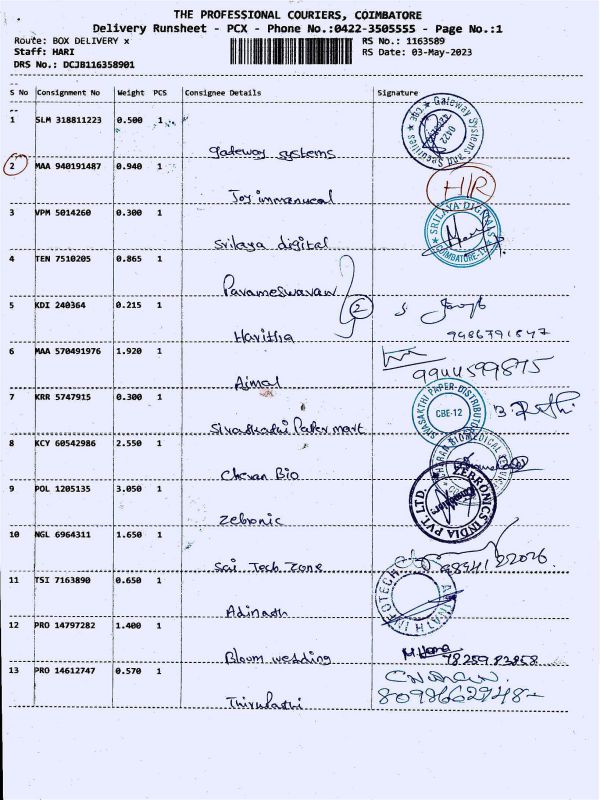 THE PROFESSIONAL COURIERS, COIMBATORE
Delivery Runsheet - PCX - Phone No.:0422-3505555 - Page No.:1
Route: BOX DELIVERY x
RS No.: 1163589
Staff: HARI
RS Date: 03-May-2023
DRS No.: DCJB116358901
S No Consignment No Weight PCS Consignee Details Signature
1 SLM 318811223 0.500 1
Gateway Systems and Securities
0422
Gateway systems
2 MAA 940191487 0.940 1
HR
Joy immanucal
3 VPM 5014260 0.300 1
SRILAYA DIGITALS
COIMBATORE
Srilaya digital
4 TEN 7510205 0.865 1
Parameswaran
2
5 KDI 240364 0.215 1
Haritha
9486791847
6 MAA 570491976 1.920 1
9944599875
Ajmal
7 KRR 5747915 0.300 1
SIVASAKTHI PAPER DISTRIBUTORS
CBE-12
Sivasakthi Paper mart
8 KCY 60542986 2.550 1
BIOMEDICAL
Cheran Bio
9 POL 1205135 3.050 1
ZEBRONICS INDIA PVT. LTD.
Zebronic
10 NGL 6964311 1.650 1
Sai Tech Zone
11 TSI 7163890 0.650 1
INFOTECH
Adinath
12 PRO 14797282 1.400 1
Bloom wedding
98259 83858
13 PRO 14612747 0.570 1